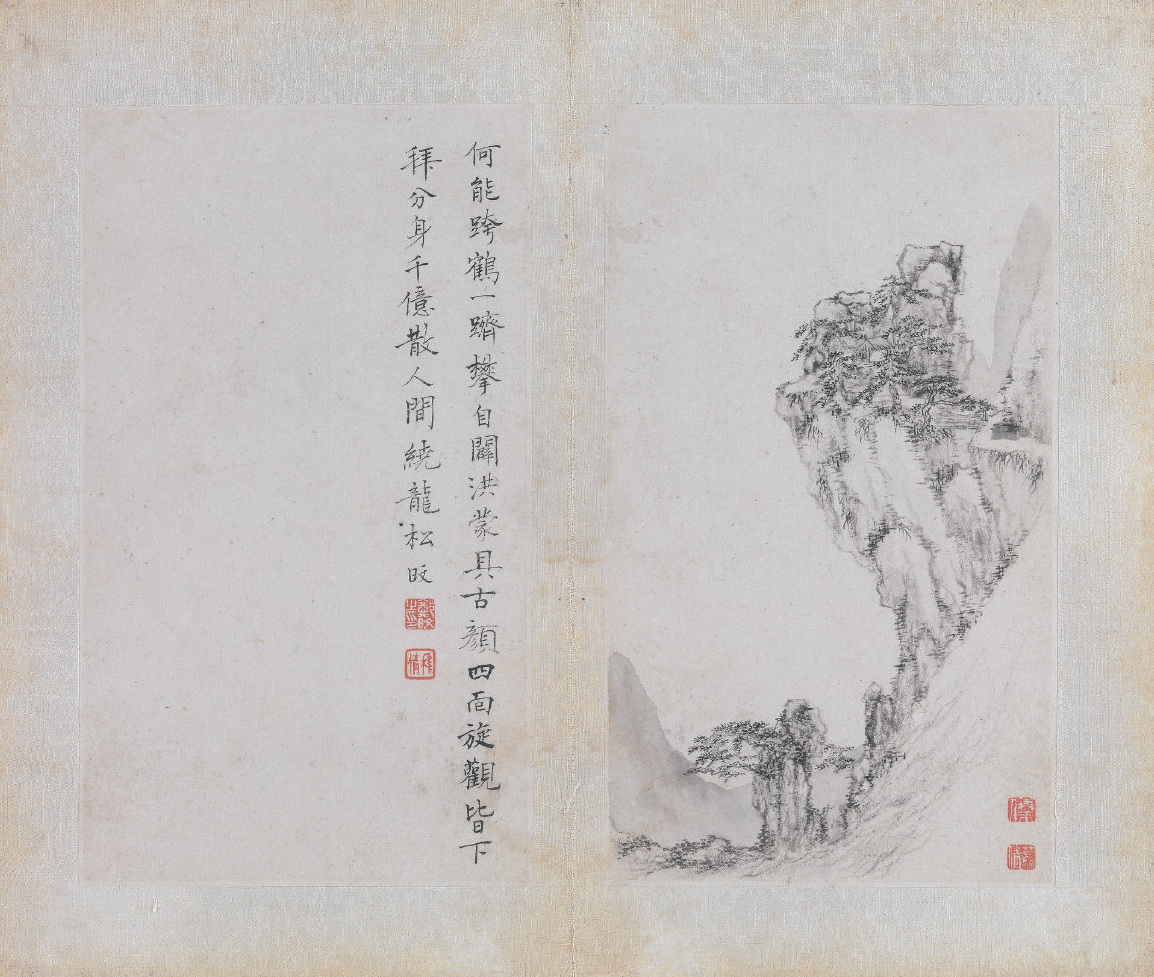 何能跨鶴一躋攀自闢洪蒙具古顏四面旋觀皆下
拜分身千億散人間繞龍松旼
鄭旼之印